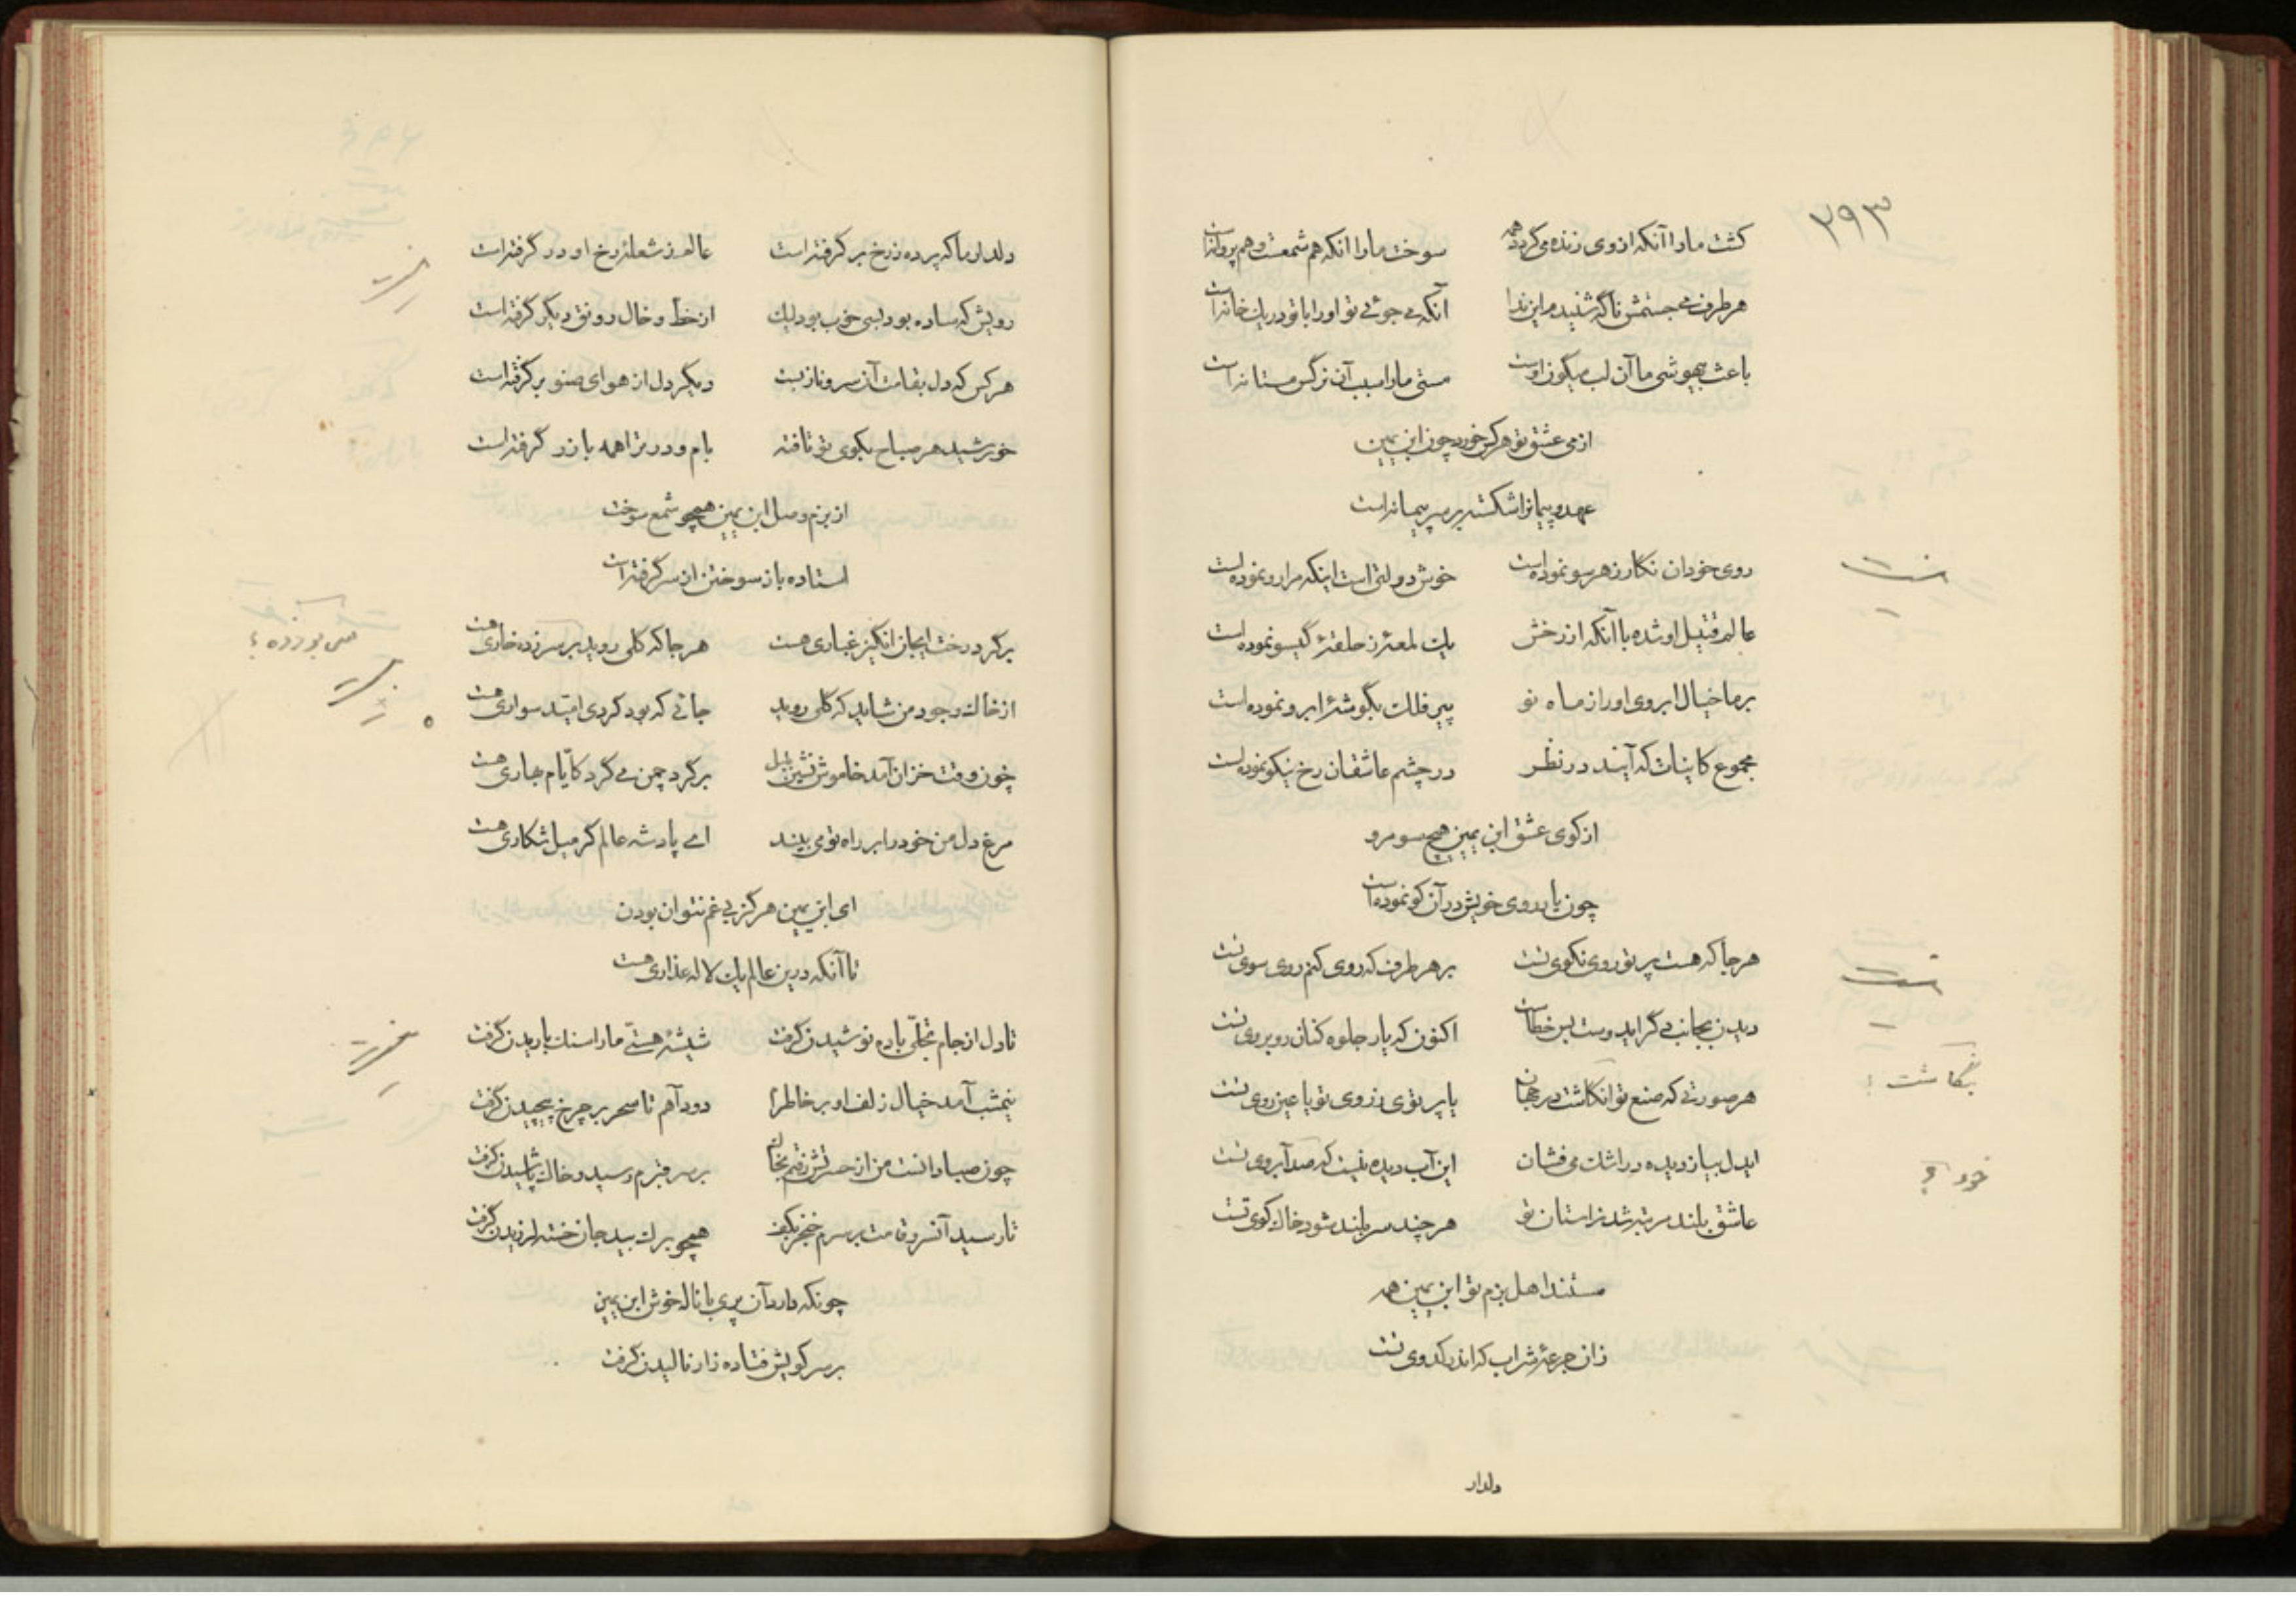 ۲۹۳
کشت مارا آنکه ازوی زنده میگردد همه سوخت مارا آنکه هم شمعست و هم پروانه است
هر طرف می جستمش ناگه شنیدم این ندا آنکه می جوئی تو اورا با تو در یک خانه است
باعث بیهوشی ما آن لب میگون اوست مستی مارا سبب آن نرگس مستانه است
از می عشق تو هر کس خورد چون ابن یمین
عهد و پیمانرا شکسته بر سر پیمانه است
روی خود آن نگار ز هر سو نموده است خوش دولتی است اینکه مرا رو نموده است
عالم قتیل او شده با آنکه از رخش یک لمعهٔ ز حلقهٔ گیسو نموده است
بر ما خیال ابروی اورا ز ماه نو پیر فلک بگوشهٔ ابرو نموده است
مجموع کاینات که آیند در نظر در چشم عاشقان رخ نیکو نموده است
از کوی عشق ابن یمین هیچ سو مرو
چون یار روی خویش در آن کو نموده است
هر جا که هست پرتو روی نکوی تست بر هر طرف که روی کنم روی سوی تست
دیدن بجانب دگر ایدوست بس خطاست اکنون که یار جلوه کنان روبروی تست
هر صورتی که صنع تو انگاشت در جهان یا پرتوی ز روی تو یا عین روی تست
بنگاشت ؟
ایدل بیا ز دیده در اشک می فشان این آب دیده نیست که صد آبروی تست
خود ؟
عاشق بلند مرتبه شد ز استان تو هر چند سر بلند شود خاک کوی تست
مستند اهل بزم تو ابن یمین همه
زان جرعهٔ شراب که اندر کدوی تست
دلدار
دلدار ما که پرده ز رخ بر گرفته است عالم ز شعلهٔ رخ او در گرفته است
رویش که ساده بود بسی خوب بود لیک از خط و خال رونق دیگر گرفته است
هر کس که دل بقامت آن سرو ناز بست دیگر دل از هوای صنوبر گرفته است
خورشید هر صباح بکوی تو تافته بام و در ترا همه با زر گرفته است
از بزم وصل ابن یمین همچو شمع سوخت
استاده باز سوختن از سر گرفته است
بر گرد رخت ایجان انگیز غباری هست هر جا که گلی روید بر سر زده خاری هست
سر بر زده ؟
از خاک وجود من شاید که گلی روید جائی که بود گردی امید سواری هست
چون وقت خزان آمد خاموش نشین بلبل بر گرد چمن می گرد کایام بهاری هست
مرغ دل من خود را بر راه تو می بیند ای پادشه عالم گر میل شکاری هست
ای ابن یمین هرگز بی غم نتوان بودن
تا آنکه درین عالم یک لاله عذاری هست
تا دل از جام تجلّی باده نوشیدن گرفت شیشهٔ هستی ما را سنگ باریدن گرفت
نیمشب آمد خیال زلف او بر خاطرم دود آهم تا سحر بر چرخ پیچیدن گرفت
چون صبا دانست من از حسرتش رفتم بخاک بر سر قبرم رسید و خاک پاشیدن گرفت
تا رسید آنسرو قامت بر سرم خنجر بکف همچو برگ بید جان خسته لرزیدن گرفت
چونکه دارد آن پری با ناله خوش ابن یمین
بر سر کویش فتاده زار نالیدن گرفت